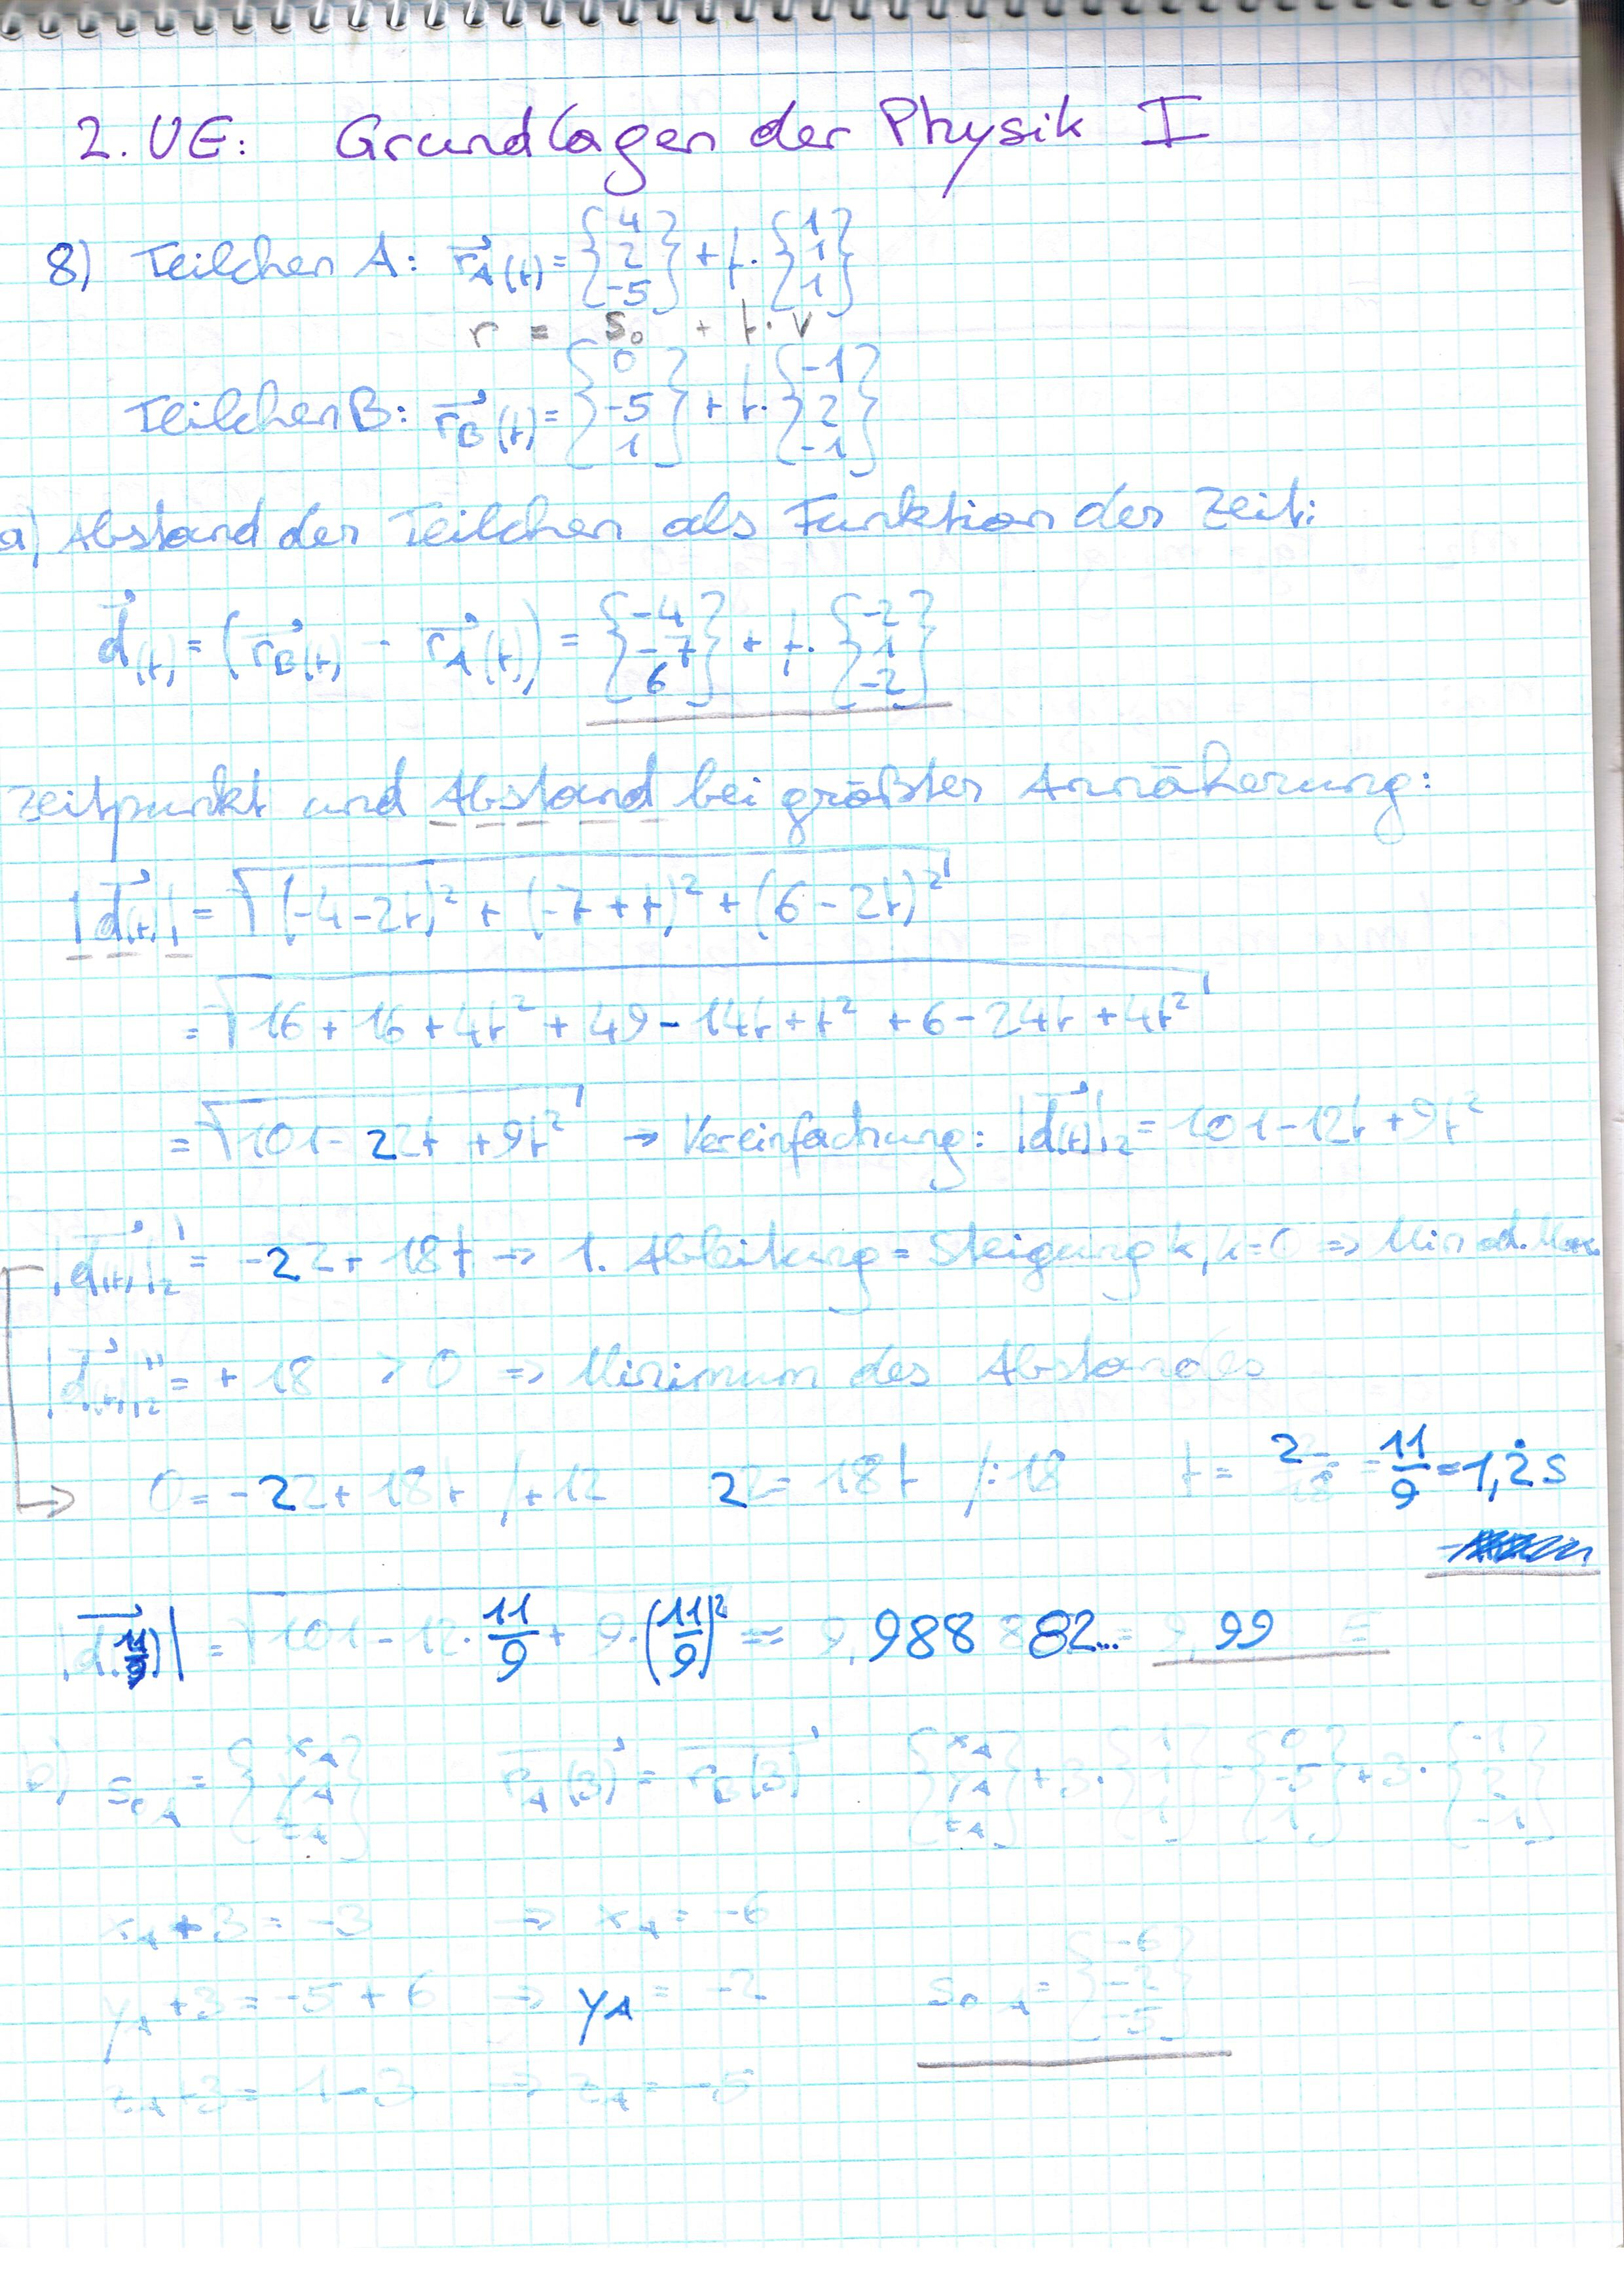 2. UE: Grundlagen der Physik I
8) Teilchen A: r⃗_A(t) = {4 2 -5} + t · {1 1 1}
r = s₀ + t · v
Teilchen B: r⃗_B(t) = {0 -5 1} + t · {-1 2 -1}
a) Abstand der Teilchen als Funktion der Zeit:
d⃗(t) = (r⃗_B(t) - r⃗_A(t)) = {-4 -7 6} + t · {-2 1 -2}
Zeitpunkt und Abstand bei größter Annäherung:
|d⃗(t)| = √((-4-2t)² + (-7+t)² + (6-2t)²)
= √(16 + 16 + 4t² + 49 - 14t + t² + 6 - 24t + 4t²)
= √(101 - 22t + 9t²) → Vereinfachung: |d⃗(t)|₂ = 101 - 12t + 9t²
|d⃗(t)|₂' = -22 + 18t → 1. Ableitung = Steigung k, k=0 ⇒ Min od. Max.
|d⃗(t)|₂'' = +18 > 0 ⇒ Minimum des Abstandes
→ 0 = -22 + 18t /+12 22 = 18t /:18 t = 2 18 = 11/9 = 1,2̇ s
|d⃗(11/9)| = √(101 - 12 · 11/9 + 9 · (11/9)²) = 9,988 82... = 9,99
b) s₀_A = {x_A y_A z_A} r⃗_A(3) = r⃗_B(3) {x_A y_A z_A} + 3 · {1 1 1} = {0 -5 1} + 3 · {-1 2 -1}
x_A + 3 = -3 ⇒ x_A = -6
y_A + 3 = -5 + 6 ⇒ y_A = -2 s₀_A = {-6 -2 -5}
z_A + 3 = 1 - 3 ⇒ z_A = -5